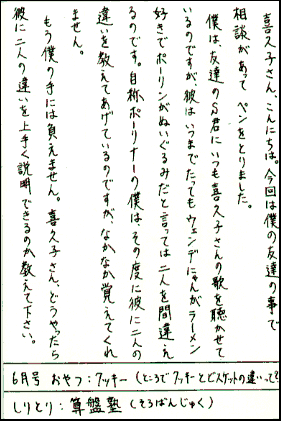 喜久子さん、こんにちは。今回は僕の友達の事で
相談があってペンをとりました。
僕は、友達のS君にいつも喜久子さんの歌を聴かせて
いるのですが、彼はいつまでたってもウェンディさんがラーメン
好きでポーリンがぬいぐるみだと言っては二人を間違え
るのです。自称ポーリナーの僕は、その度に彼に二人の
違いを教えてあげているのですが、なかなか覚えてくれ
ません。
もう僕の手には負えません。喜久子さん、どうやったら
彼に二人の違いを上手く説明できるのか教えて下さい。
6月号 おやつ：クッキー（ところでクッキーとビスケットの違いって？
しりとり：算盤塾（そろばんじゅく）